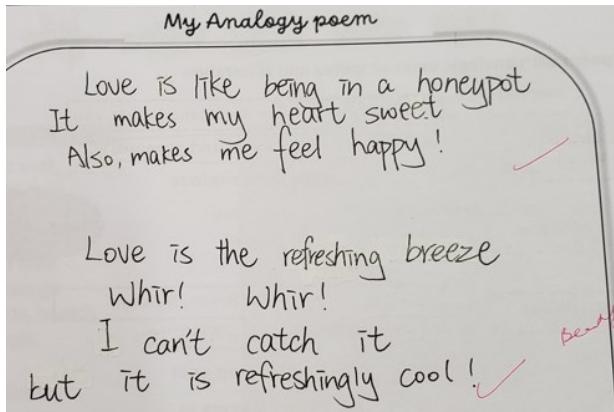 My Analogy poem
Love is like being in a honeypot
It makes my heart sweet
Also, makes me feel happy!
Love is the refreshing breeze
Whir! Whir!
I can't catch it
but it is refreshingly cool!